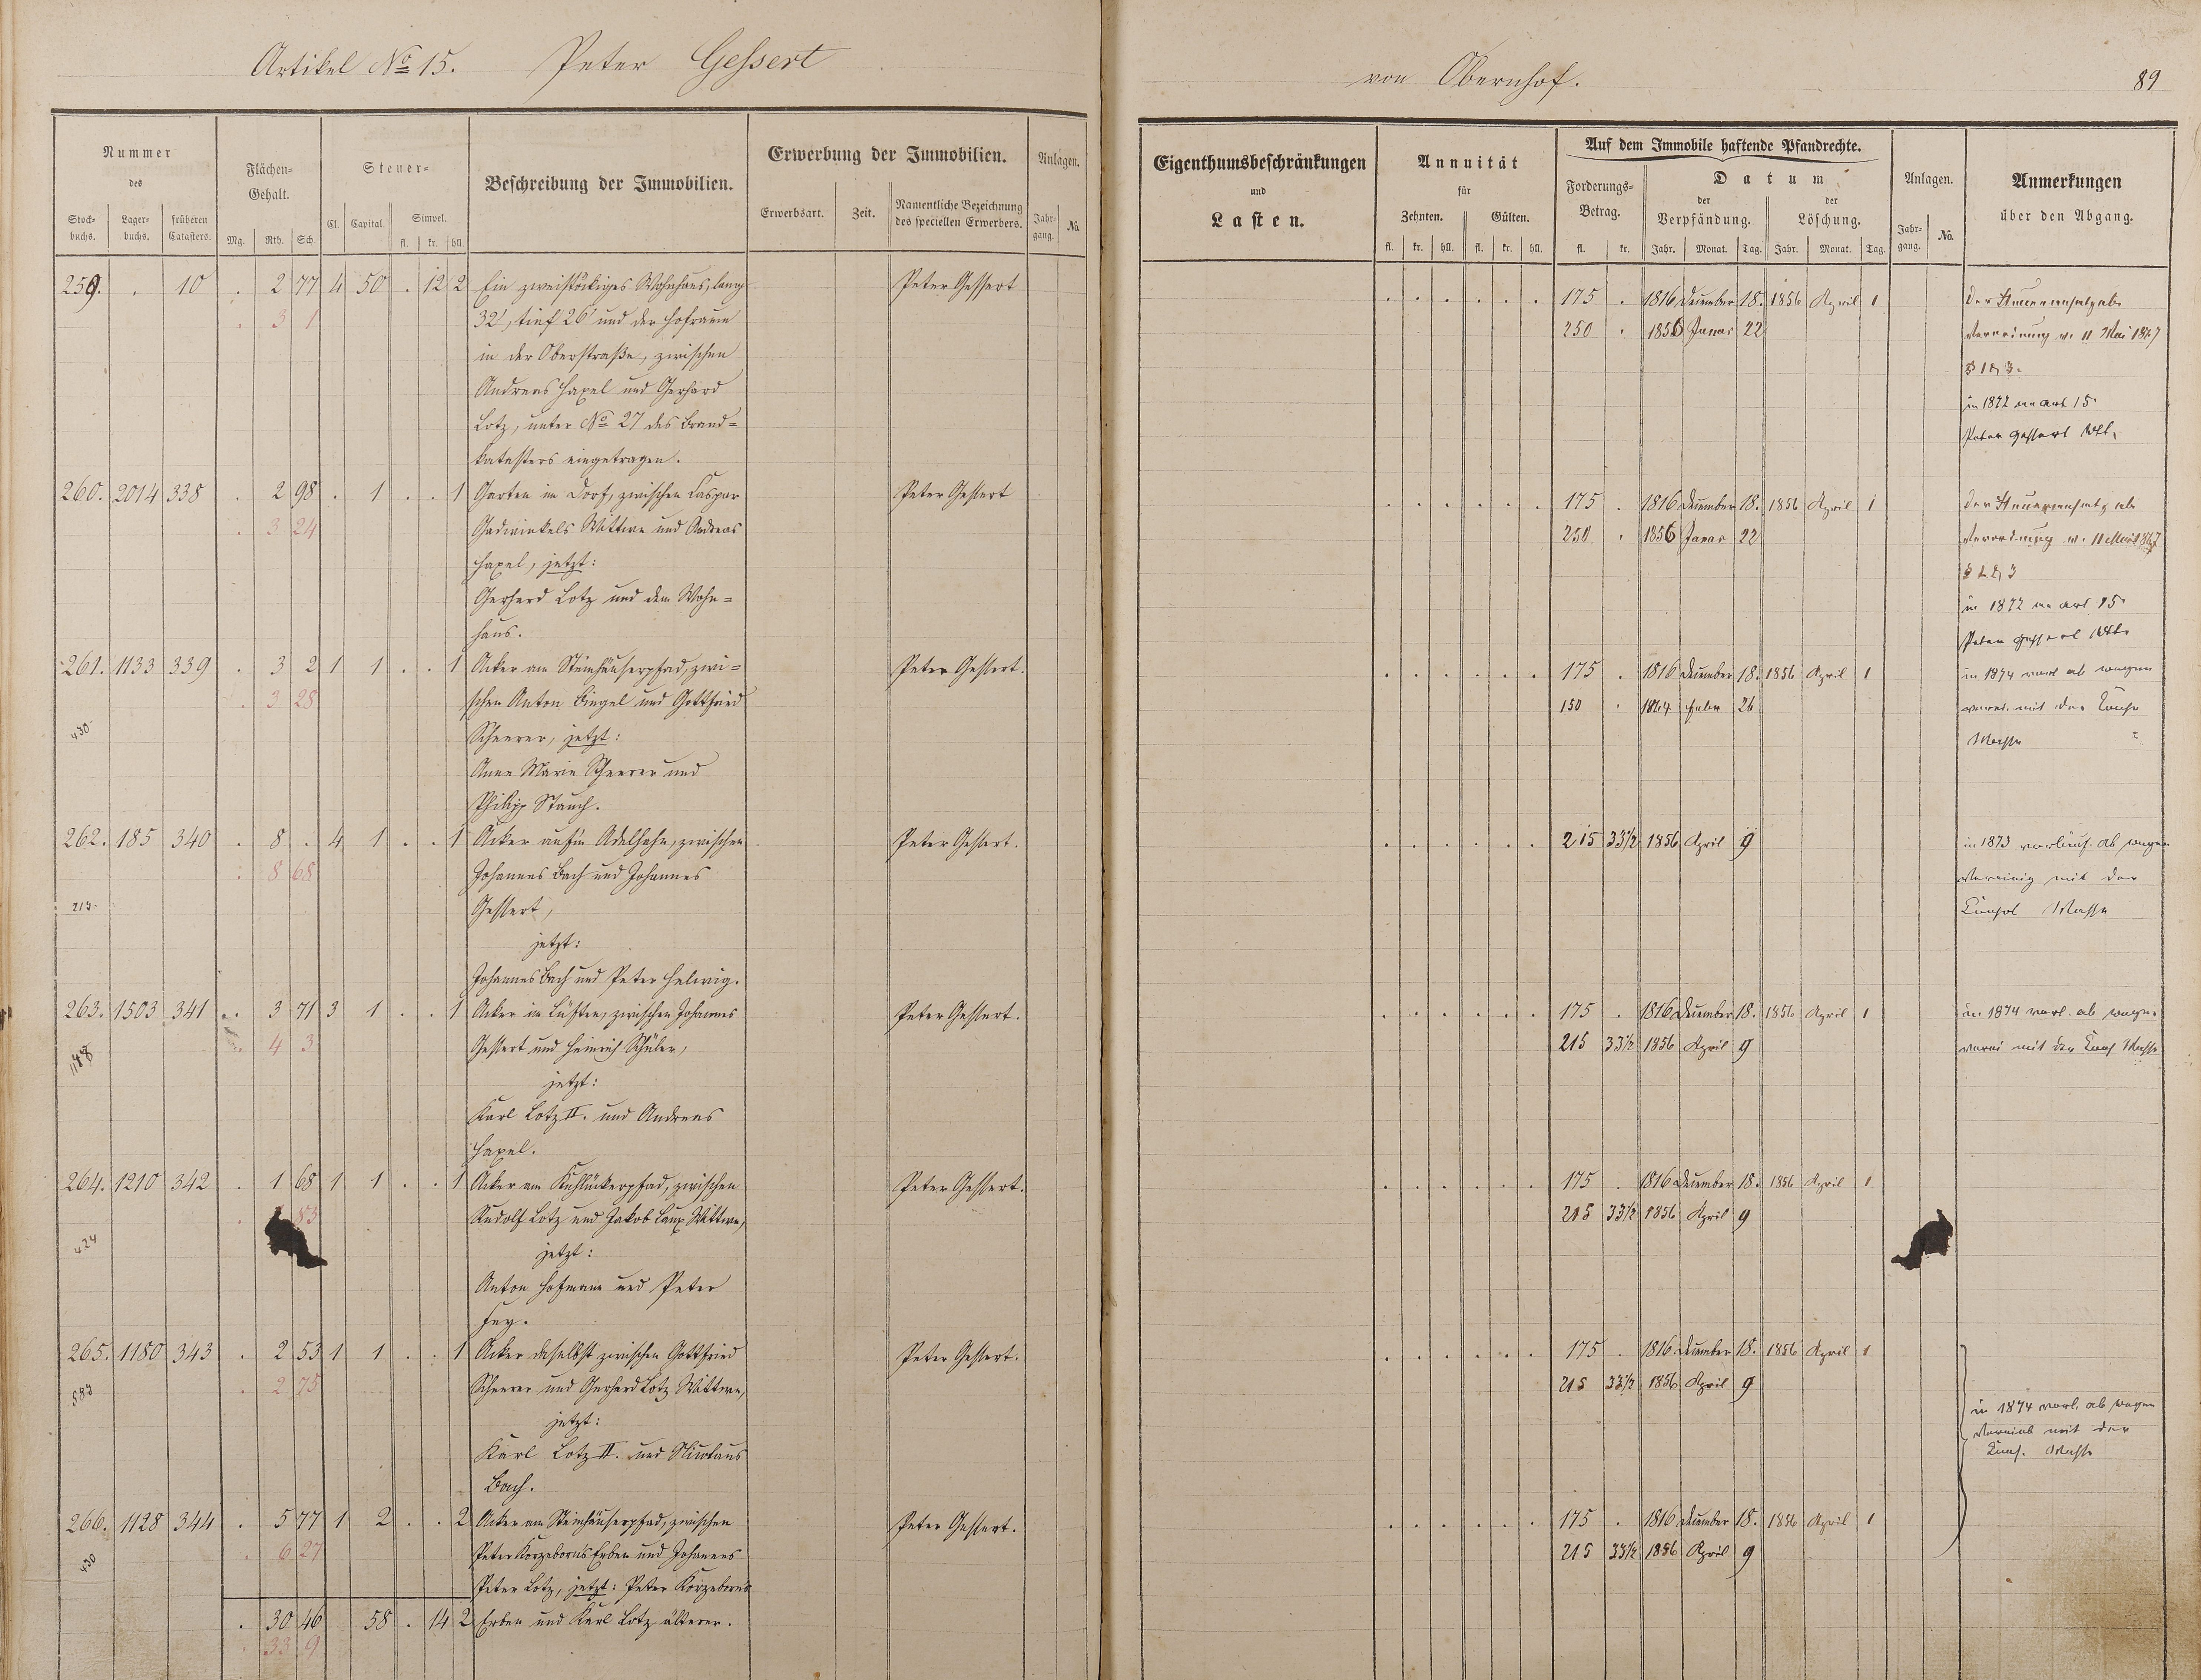 Artikel No 15. Peter Gessert
von Obernhof. 89
Nummer des Flächen-Gehalt. Steuer- Beschreibung der Immobilien. Erwerbung der Immobilien. Anlagen.
Stockbuchs. Lagerbuchs. früheren Catasters. Mg. Rth. Sch. Cl. Capital. Simpel. fl. kr. hll. Erwerbsart. Zeit. Namentliche Bezeichnung des speciellen Erwerbers. Jahrgang. No.
Eigenthumsbeschränkungen und Lasten. Annuität für Zehnten. Gülten. fl. kr. hll. fl. kr. hll. Auf dem Immobile haftende Pfandrechte. Forderungs-Betrag. fl. kr. Datum der Verpfändung. Jahr. Monat. Tag. der Löschung. Jahr. Monat. Tag. Anlagen. Jahrgang. No. Anmerkungen über den Abgang.
259. . 10 . 2 77 4 50 . 12 2 Ein zweistöckiges Wohnhaus, lang Peter Gessert
. 3 1 32', tief 26' und der Hofraum
in der Oberstraße, zwischen
Andreas Hapel und Gerhard
Lotz, unter No 27 des Brand=
katasters eingetragen.
175 . 1816 December 18. 1856 April 1
250 . 1856 Januar 22
Verordnung v. 11 Mai 1867
§ 1 & 3.
in 1872 an art 15
Peter Gessert
260. 2014 338 . 2 98 . 1 . . 1 Garten im Dorf, zwischen Caspar Peter Gessert
. 3 24 Wittwe und Andreas
Hapel, jetzt:
Gerhard Lotz und dem Wohn=
haus.
175 . 1816 December 18. 1856 April 1
250 . 1856 Januar 22
Verordnung v. 11 Mai 1867
§ 1 & 3
in 1872 an art 15
Peter Gessert
261. 1133 339 . 3 2 1 1 . . 1 Acker am Steinhäuserpfad, zwi= Peter Gessert.
. 3 28 schen Anton Bingel und Gottfried
430 Scheerer, jetzt:
Anna Maria Scheerer und
Philipp Stauch.
175 . 1816 December 18. 1856 April 1
150 . 1864 Febr 26
in 1874 vorl ab wegen
verei. mit der Conso
Masse
262. 185 340 . 8 . 4 1 . . 1 Acker auf'm Adelhahn, zwischen Peter Gessert.
. 8 68 Johannes Bach und Johannes
213. Gessert,
jetzt:
Johannes Bach und Peter Helwig.
215 33½ 1856 April 9
in 1873 vorläuf. ab wegen
Vereinig mit der
Consol Masse
263. 1503 341 . 3 71 3 1 . . 1 Acker in Lüsten, zwischen Johannes Peter Gessert.
. 4 3 Gessert und Heinrich Schüler,
jetzt:
Karl Lotz II. und Andreas
Hapel.
175 . 1816 December 18. 1856 April 1
215 33½ 1856 April 9
in 1874 vorl. ab wegen
verei mit der Cons Masse
264. 1210 342 . 1 68 1 1 . . 1 Acker am Kuhlückerpfad, zwischen Peter Gessert.
83 Rudolf Lotz und Jakob Laux Wittwe,
424 jetzt:
Anton Hofmann und Peter
Fey.
175 . 1816 December 18. 1856 April 1
215 33½ 1856 April 9
265. 1180 343 . 2 53 1 1 . . 1 Acker daselbst zwischen Gottfried Peter Gessert.
. 2 75 Scheerer und Gerhard Lotz Wittwe,
583 jetzt:
Karl Lotz II. und Nicolaus
Bach.
175 . 1816 December 18. 1856 April 1
215 33½ 1856 April 9
in 1874 vorl. ab wegen
Vereinb mit der
Cons. Masse
266. 1128 344 . 5 77 1 2 . . 2 Acker am Steinhäuserpfad, zwischen Peter Gessert.
. 6 27 Peter Korzeborns Erben und Johannes
430 Peter Lotz, jetzt: Peter Korzeborns
. 30 46 58 . 14 2 Erben und Karl Lotz älterer.
33 9
175 . 1816 December 18. 1856 April 1
215 33½ 1856 April 9